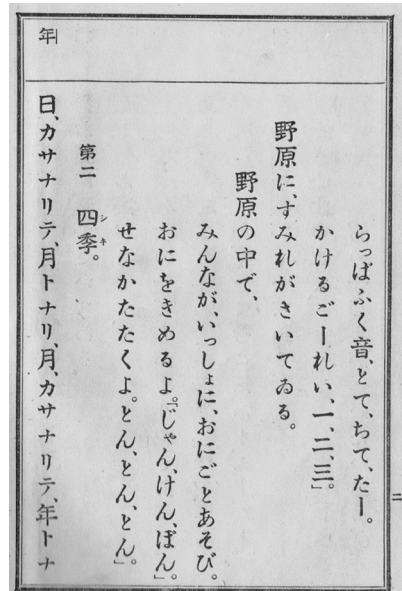 年
らっぱふく音、とて、ちて、たー。
かけるごーれい、一、二、三」。
野原に、すみれがさいてゐる。
野原の中で、
みんなが、いっしょに、おにごとあそび。
おにをきめるよ。「じゃん、けん、ぽん」。
せなかたたくよ。とん、とん、とん」。
第二 四季。
シキ
日、カサナリテ、月トナリ、月、カサナリテ、年トナ
二